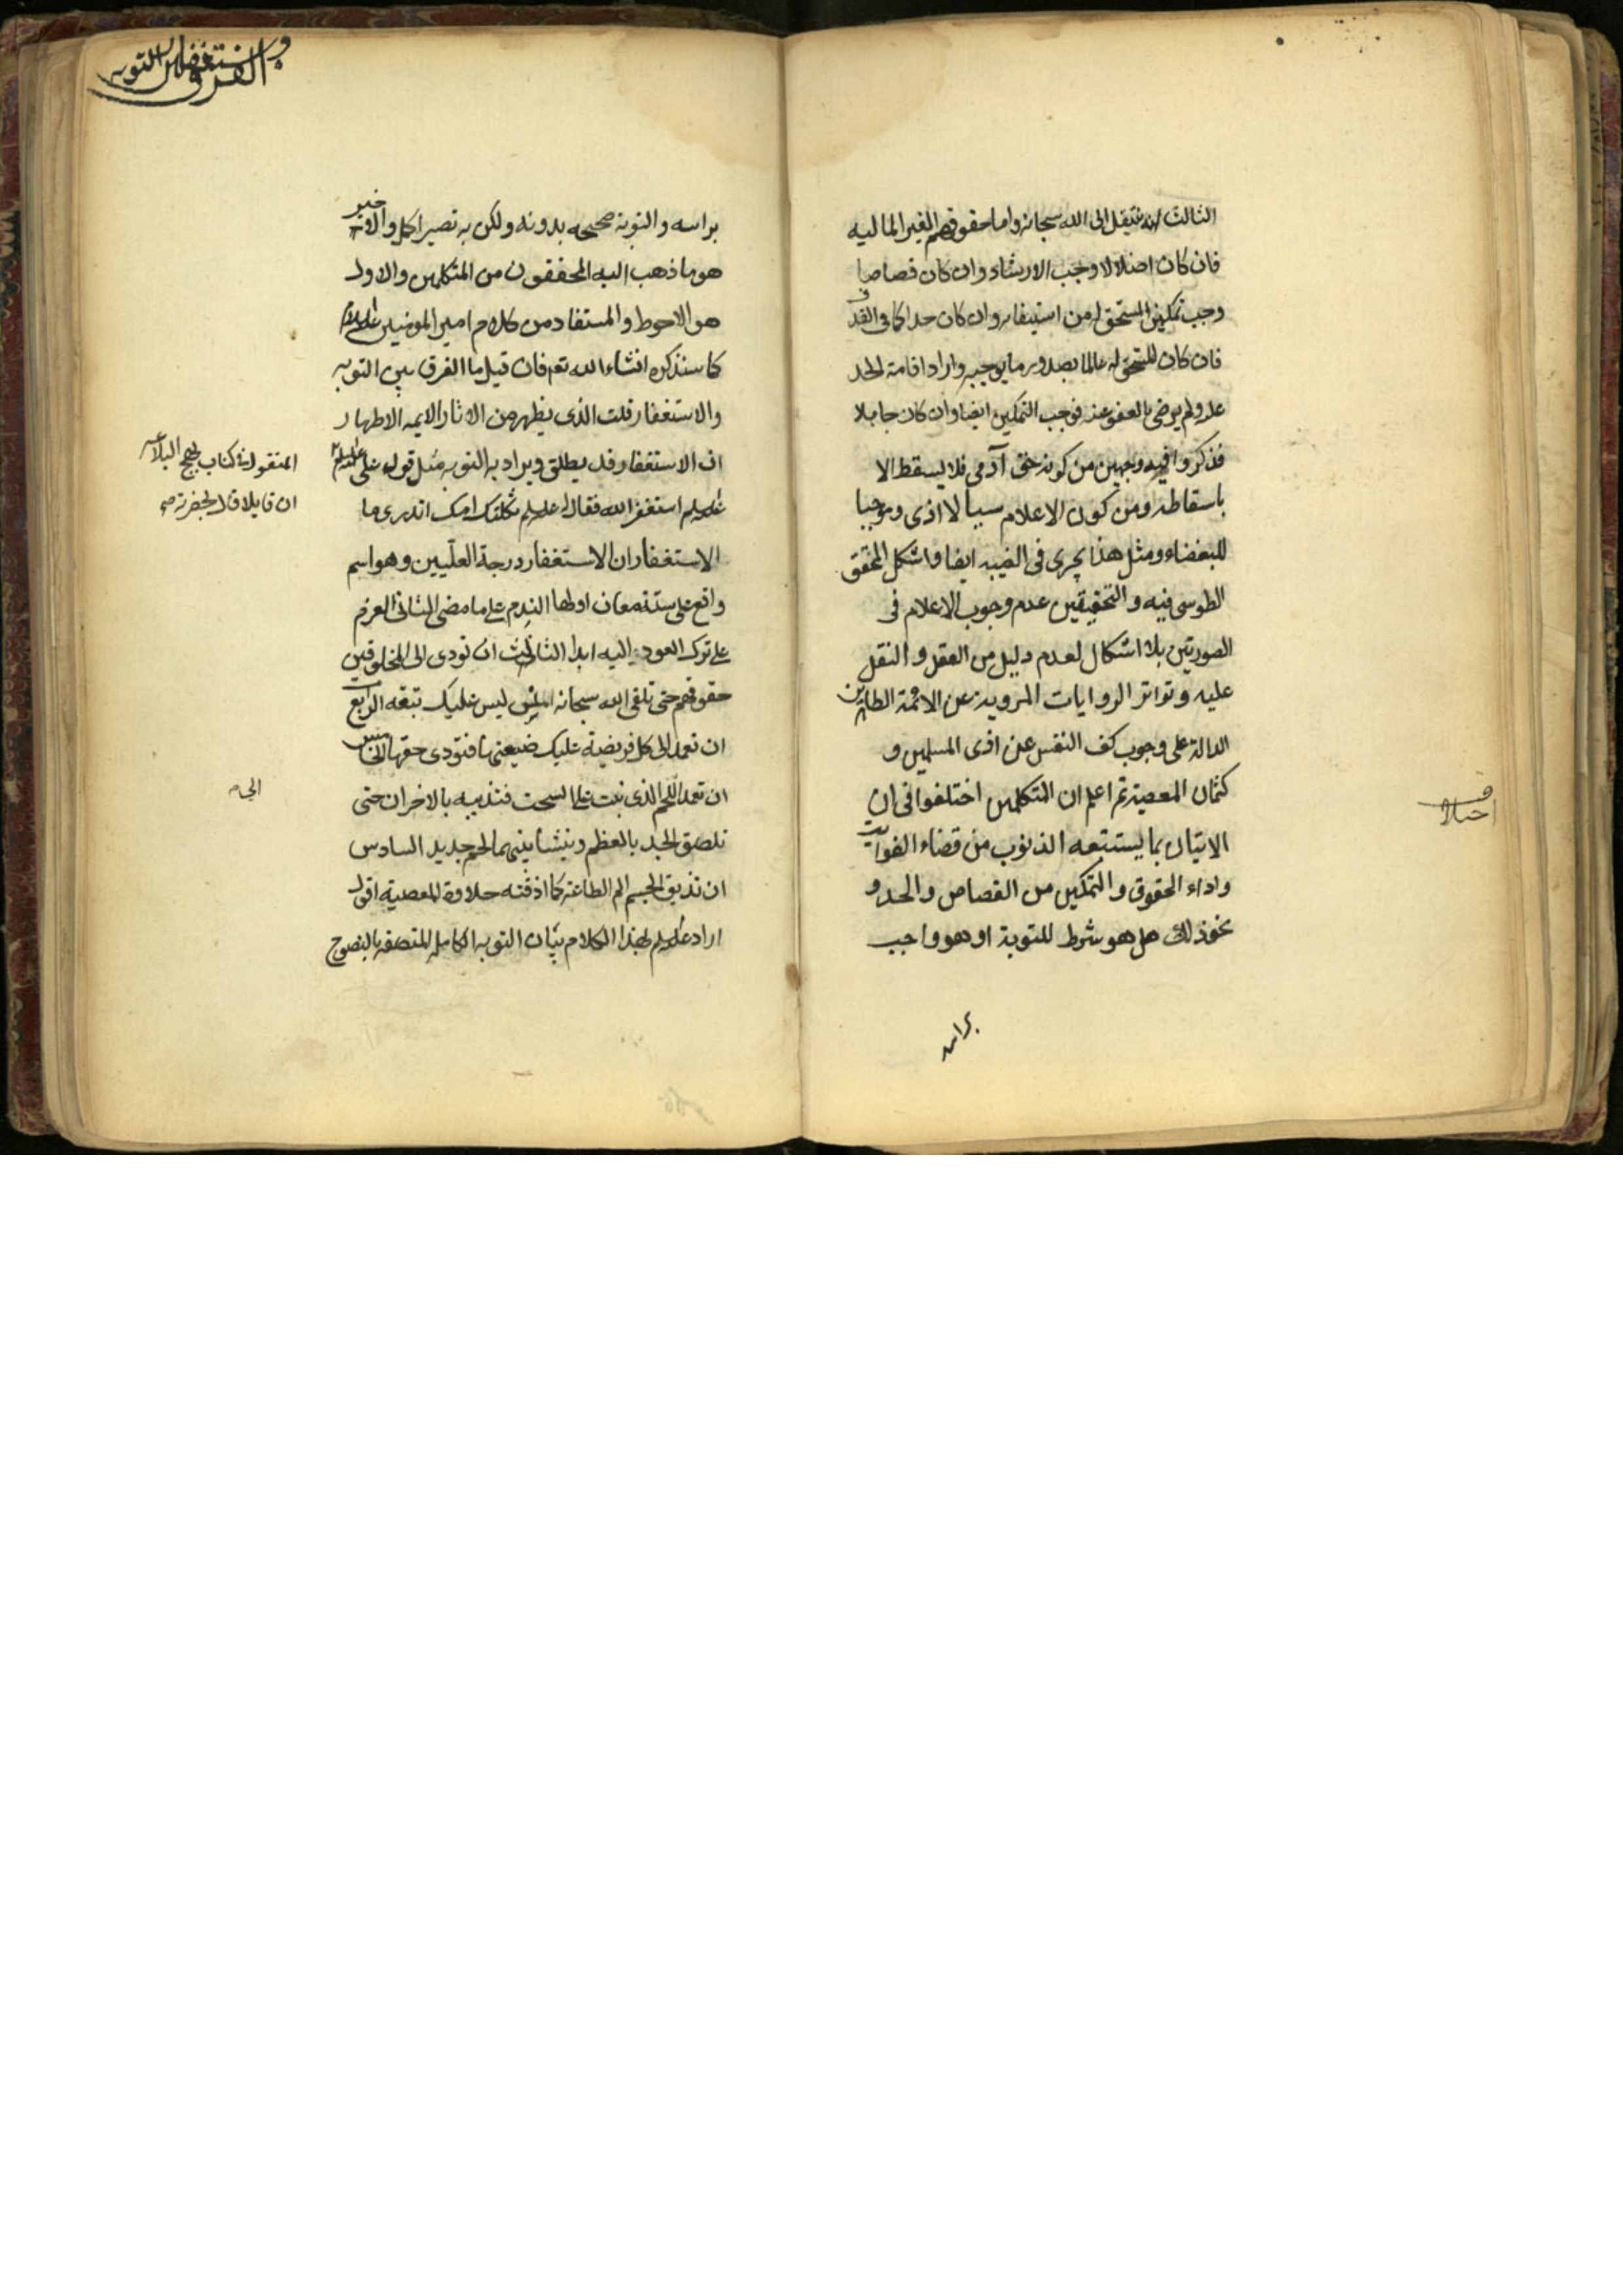 الثالث انه ينتقل الى الله سبحانه واما حقوقهم الغير الماليه
فان كان اضلالا وجب الارشاد وان كان قصاصا
وجب تمكين المستحق له من استيفائه وان كان حدا كما فى القذف
فان كان المستحق له عالما بصدور ما يوجبه واراد اقامة الحد
عليه ولم يرضى بالعفو عنه فوجب التمكين ايضا وان كان جاهلا
فذكروا فيه وجهين من كونه حق آدمى فلا يسقط الا
باسقاطه ومن كون الاعلام سببا لاذى وموجبا
للبغضاء ومثل هذا يجرى فى الغيبه ايضا واشكل المحقق
الطوسى فيه والتحقيق عدم وجوب الاعلام فى
الصورتين بلا اشكال لعدم دليل من العقل والنقل
عليه وتواتر الروايات المروية عن الائمة الطاهرين
الدالة على وجوب كف النفس عن اذى المسلمين و
كتمان المعصية ثم اعلم ان المتكلمين اختلفوا فى ان
الاتيان بما يستتبعه الذنوب من قضاء الفوايت
واداء الحقوق والتمكين من القصاص والحد و
نحو ذلك هل هو شرط للتوبة او هو واجب
براسه
اختلاف
الفرق بين التوبه
والاستغفار
براسه والتوبة صحيحه بدونه ولكن به تصير اكمل والاخير
هو ما ذهب اليه المحققون من المتكلمين والاول
هو الاحوط والمستفاد من كلام امير المومنين عليه السلام
كما سنذكره انشاء الله تع فان قيل ما الفرق بين التوبه
والاستغفار قلت الذى يظهر من الاثار الايمه الاطهار
ان الاستغفار قد يطلق ويراد به التوبه مثل قول على عليه السلام
عليه السلام استغفر الله فقال له عليه السلام ثكلتك امك اتدرى ما
الاستغفار ان الاستغفار درجة العلّيين وهو اسم
واقع على ستة معان اولها الندم على ما مضى الثانى العزم
على ترك العود اليه ابدا الثالث ان تودى الى المخلوقين
حقوقهم حتى تلقى الله سبحانه املس ليس عليك تبعه الرابع
ان تعمد الى كل فريضة عليك ضيعتها فتؤدى حقها الخامس
ان تعمد اللحم الذى نبت على السحت فتذيبه بالاحزان حتى
تلصق الجلد بالعظم وينشا بينهما لحم جديد السادس
ان تذيق الجسم الم الطاعة كما اذقته حلاوة المعصية اقول
اراد عليه السلام بهذا الكلام بيان التوبه الكامله المتصفه بالنصوح
المنقول فى كتاب نهج البلاغه
ان قايلا قال بحضرته
الى